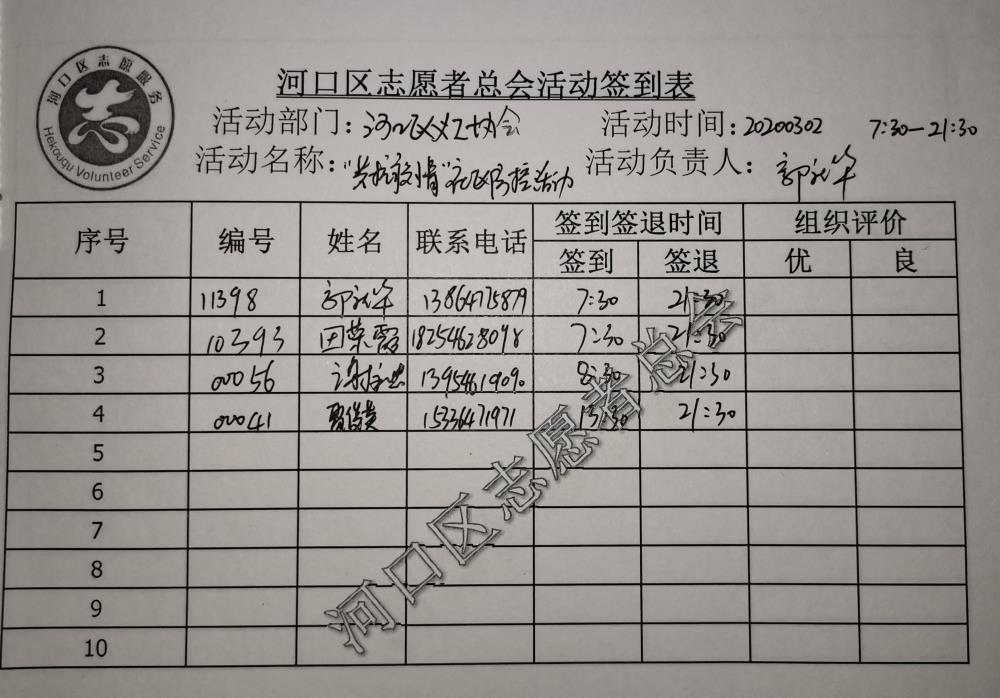 河口区志愿服务
志
Hekouqu Volunteer Service
河口区志愿者总会活动签到表
活动部门：河口区义工协会 活动时间：20200302 7:30—21:30
活动名称："共抗疫情"社区防控活动 活动负责人：郭
序号 编号 姓名 联系电话 签到签退时间 组织评价
签到 签退 优 良
1 11398 郭 13864775879 7:30 21:30
2 10393 田荣霞 18254628098 7:30 21:30
3 00056 谢 13954619090 8:30 21:30
4 00041 15336471971 13:30 21:30
5
6
7
8
9
10
河口区志愿者总会